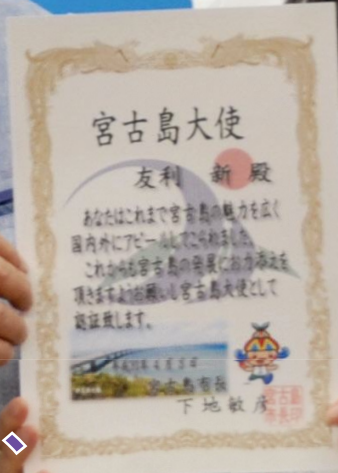 宮古島大使
友利 新 殿
あなたはこれまで宮古島の魅力を広く
国内外にアピールしてこられました。
これからも宮古島の発展にお力添えを
頂きますようお願いし宮古島大使として
認証致します。
宮古島市長
下地敏彦
宮古島
市長印